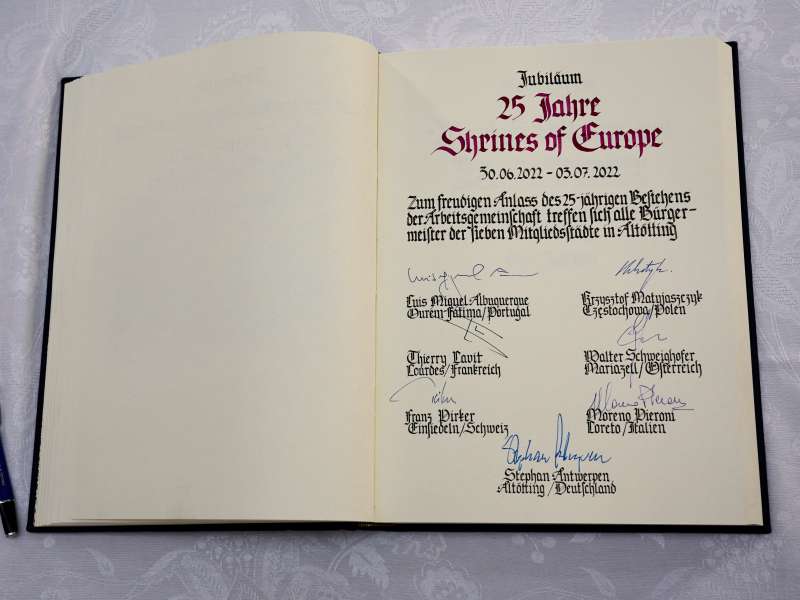 Jubiläum
25 Jahre
Shrines of Europe
30.06.2022 - 03.07.2022
Zum freudigen Anlass des 25-jährigen Bestehens
der Arbeitsgemeinschaft treffen sich alle Bürger-
meister der sieben Mitgliedsstädte in Altötting
Luis Miguel Albuquerque
Ourém-Fátima/Portugal
Krzysztof Matyjaszczyk
Częstochowa/Polen
Thierry Lavit
Lourdes/Frankreich
Walter Schweighofer
Mariazell/Österreich
Franz Pirker
Einsiedeln/Schweiz
Moreno Pieroni
Loreto/Italien
Stephan Antwerpen
Altötting/Deutschland